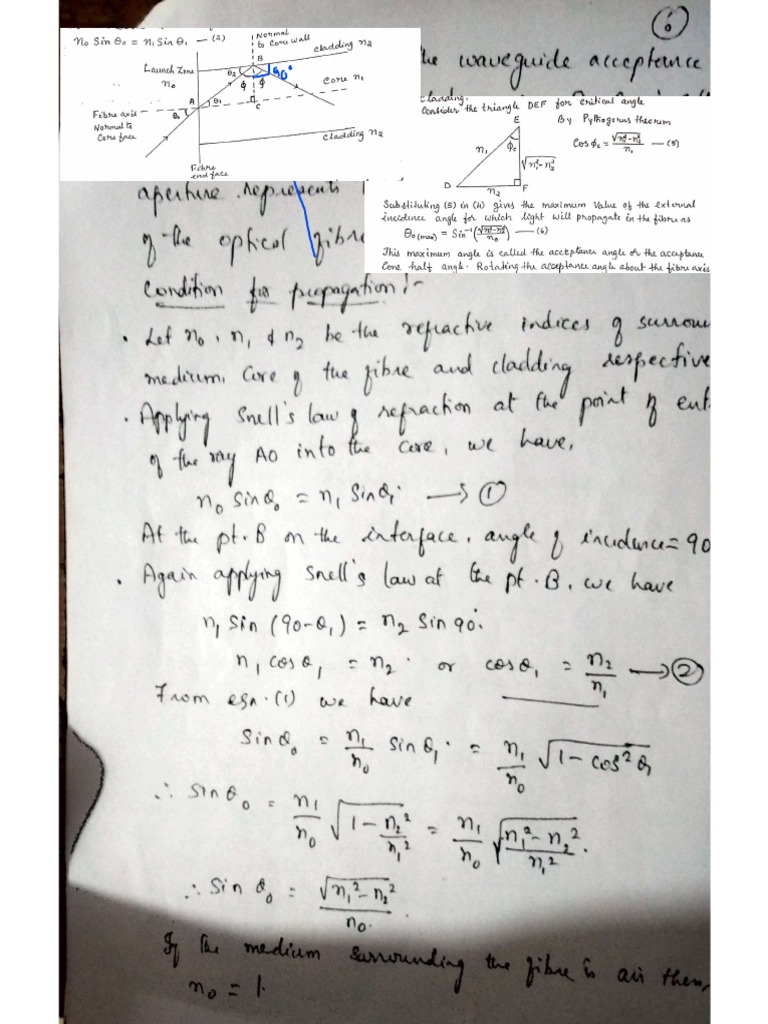 6
n₀ Sin θ₀ = n₁ Sin θ₁ — (2)
Normal
to Core wall
cladding n₂
B
Launch Zone
n₀
θ₂
90°
ϕ ϕ
Core n₁
A
θ₁
C
Fibre axis
Normal to
Core face
θ₀
cladding n₂
Fibre
end face
the waveguide acceptance
cladding.
Consider the triangle DEF for critical angle
E
By Pythogorus theorem
n₁
ϕc
Cos ϕc = √(n₁²-n₂²)/n₁ — (5)
√(n₁²-n₂²)
D
n₂
F
Substituting (5) in (4) gives the maximum value of the external
incidence angle for which light will propagate in the fibre as
θ₀(max) = Sin⁻¹(√(n₁²-n₂²)/n₀) — (6)
This maximum angle is called the acceptance angle or the acceptance
Cone half angle. Rotating the acceptance angle about the fibre axis
aperture represents
of the optical fibre
Condition for propagation:-
• Let n₀, n₁ & n₂ be the refractive indices of surrou
medium, Core of the fibre and cladding respective
• Applying Snell's law of refraction at the point of ent
of the ray AO into the core, we have,
n₀ Sinθ₀ = n₁ Sinθ₁ → ①
At the pt. B on the interface, angle of incidence = 90
• Again applying Snell's law at the pt. B, we have
n₁ Sin (90-θ₁) = n₂ Sin 90°.
n₁ cosθ₁ = n₂ or cosθ₁ = n₂/n₁ → ②
From eqn. (1) we have
Sinθ₀ = n₁/n₀ Sinθ₁ = n₁/n₀ √(1-cos²θ₁)
∴ Sinθ₀ = n₁/n₀ √(1-n₂²/n₁²) = n₁/n₀ √((n₁²-n₂²)/n₁²).
∴ Sin θ₀ = √(n₁²-n₂²)/n₀.
If the medium surrounding the fibre is air then,
n₀ = 1.